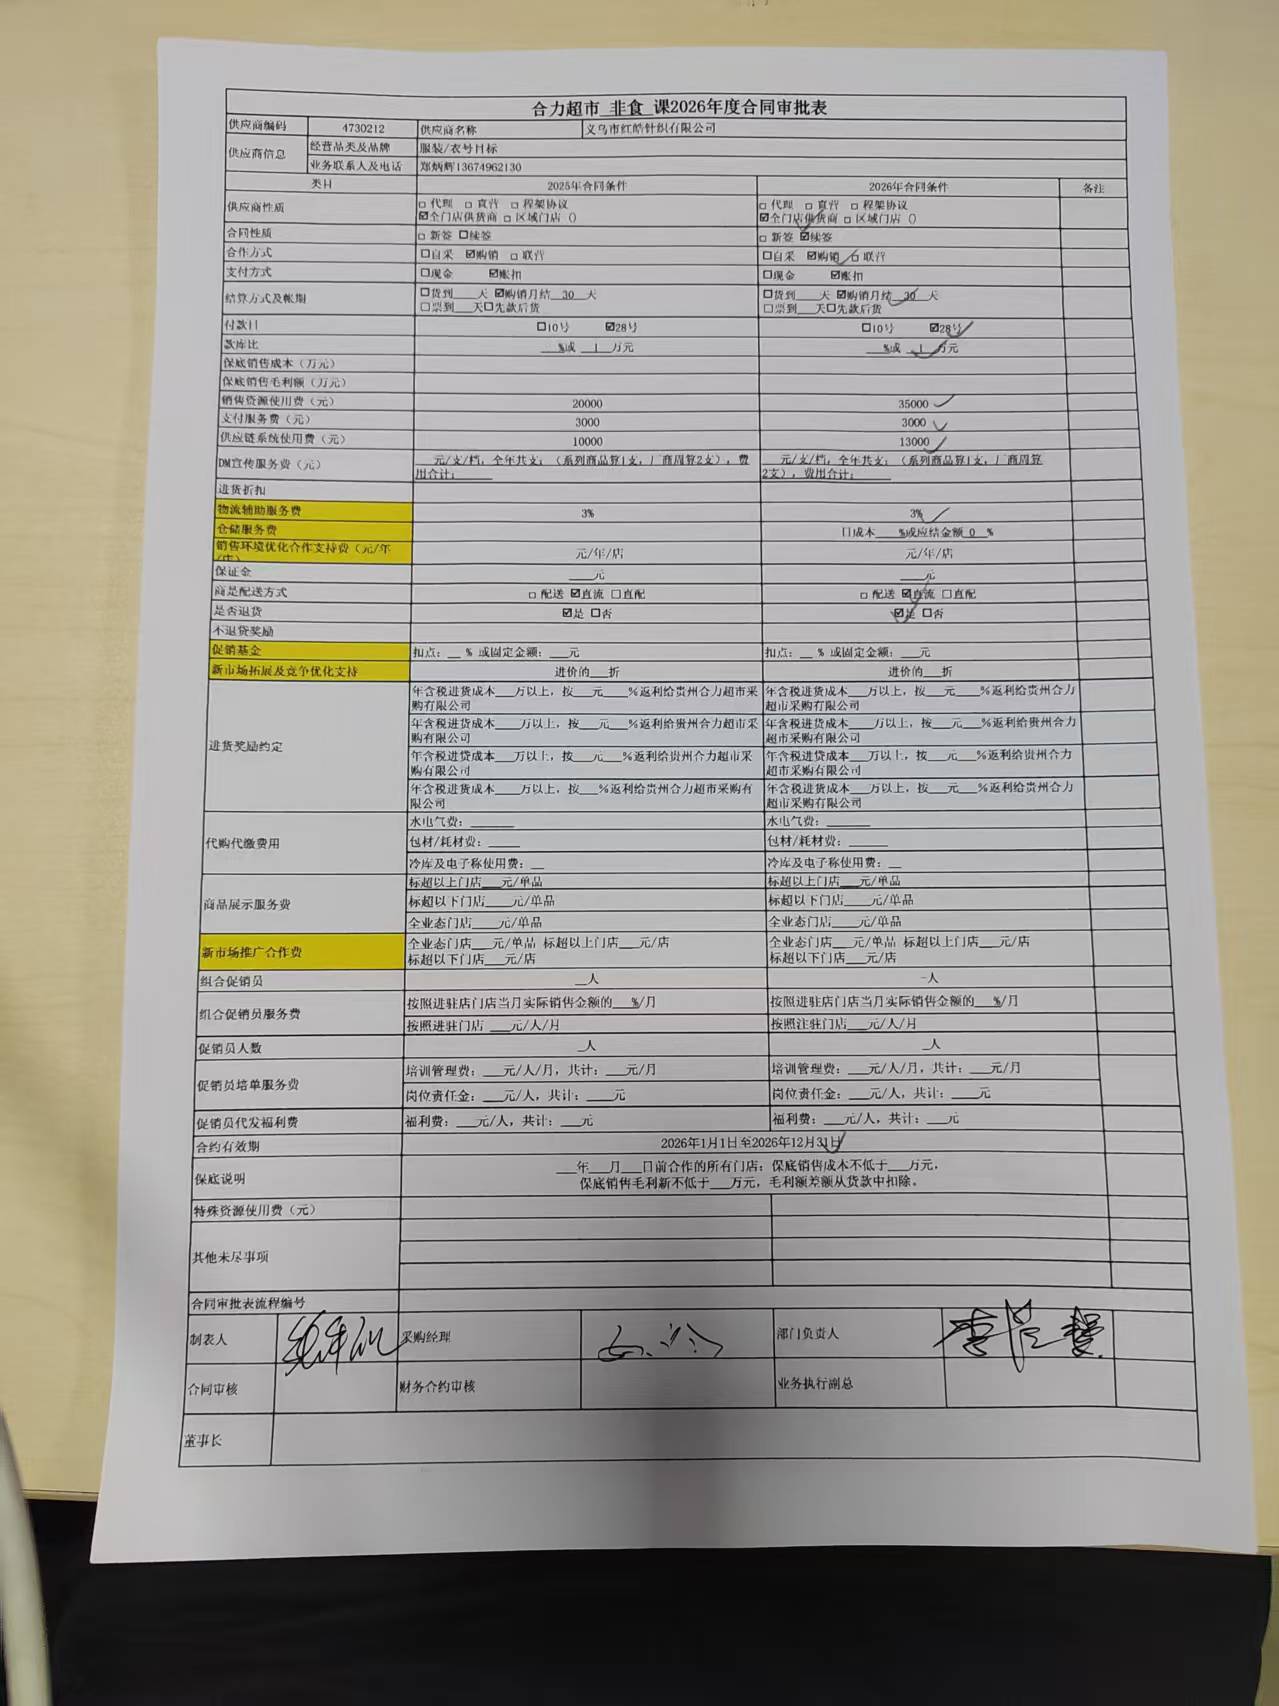 合力超市 非食 课2026年度合同审批表
供应商编码 4730212 供应商名称 义乌市红皓针织有限公司
供应商信息 经营品类及品牌 服装/衣号目标
业务联系人及电话 郑炳辉13674962130
类目 2025年合同条件 2026年合同条件 备注
供应商性质 □ 代理 □ 直营 □ 程架协议 □ 代理 □ 直营 □ 程架协议
☑全门店供货商 □ 区域门店 () ☑全门店供货商 □ 区域门店 ()
合同性质 □ 新签 □续签 □ 新签 ☑续签
合作方式 □自采 ☑购销 □ 联营 □自采 ☑购销 □ 联营
支付方式 □现金 ☑账扣 □现金 ☑账扣
结算方式及帐期 □货到___天 ☑购销月结__30__天 □货到___天 ☑购销月结__30__天
□票到___天□先款后货 □票到___天□先款后货
付款日 □10号 ☑28号 □10号 ☑28号
款库比 ___%或__1__万元 ___%或__1__万元
保底销售成本（万元）
保底销售毛利额（万元）
销售资源使用费（元） 20000 35000
支付服务费（元） 3000 3000
供应链系统使用费（元） 10000 13000
DM宣传服务费（元） ___元/支/档，全年共支；（系列商品算1支，厂商周算2支），费用合计：______ ___元/支/档，全年共支；（系列商品算1支，厂商周算2支），费用合计：______
进货折扣
物流辅助服务费 3% 3%
仓储服务费 日成本___%或应结金额_0_%
销售环境优化合作支持费（元/年/店） 元/年/店 元/年/店
保证金 ____元 ____元
商是配送方式 □ 配送 ☑直流 □直配 □ 配送 ☑直流 □直配
是否退货 ☑是 □否 ☑是 □否
不退货奖励
促销基金 扣点：__ % 或固定金额：___元 扣点：__ % 或固定金额：___元
新市场拓展及竞争优化支持 进价的___折 进价的___折
进货奖励约定 年含税进货成本___万以上，按___元___%返利给贵州合力超市采购有限公司 年含税进货成本___万以上，按___元___%返利给贵州合力超市采购有限公司
年含税进货成本___万以上，按___元___%返利给贵州合力超市采购有限公司 年含税进货成本___万以上，按___元___%返利给贵州合力超市采购有限公司
年含税进贷成本___万以上，按___元___%返利给贵州合力超市采购有限公司 年含税进贷成本___万以上，按___元___%返利给贵州合力超市采购有限公司
年含税进货成本___万以上，按___%返利给贵州合力超市采购有限公司 年含税进货成本___万以上，按___元___%返利给贵州合力超市采购有限公司
代购代缴费用 水电气费：______ 水电气费：______
包材/耗材费：_____ 包材/耗材费：_____
冷库及电子称使用费：__ 冷库及电子称使用费：__
商品展示服务费 标超以上门店___元/单品 标超以上门店___元/单品
标超以下门店____元/单品 标超以下门店____元/单品
全业态门店____元/单品 全业态门店____元/单品
新市场推广合作费 全业态门店___元/单品 标超以上门店___元/店 全业态门店___元/单品 标超以上门店___元/店
标超以下门店___元/店 标超以下门店___元/店
组合促销员 __人 -人
组合促销员服务费 按照进驻店门店当月实际销售金额的___%/月 按照进驻店门店当月实际销售金额的___%/月
按照进驻门店 ___元/人/月 按照注驻门店___元/人/月
促销员人数 _人 _人
促销员培单服务费 培训管理费：___元/人/月，共计：___元/月 培训管理费：___元/人/月，共计：___元/月
岗位责任金：___元/人，共计：____元 岗位责任金：___元/人，共计：___元
促销员代发福利费 福利费：___元/人，共计：___元 福利费：___元/人，共计：___元
合约有效期 2026年1月1日至2026年12月31日
保底说明 ___年___月___日前合作的所有门店：保底销售成本不低于___万元，
保底销售毛利新不低于___万元，毛利额差额从货款中扣除。
特殊资源使用费（元）
其他未尽事项
合同审批表流程编号
制表人 采购经理 部门负责人
合同审核 财务合约审核 业务执行副总
董事长